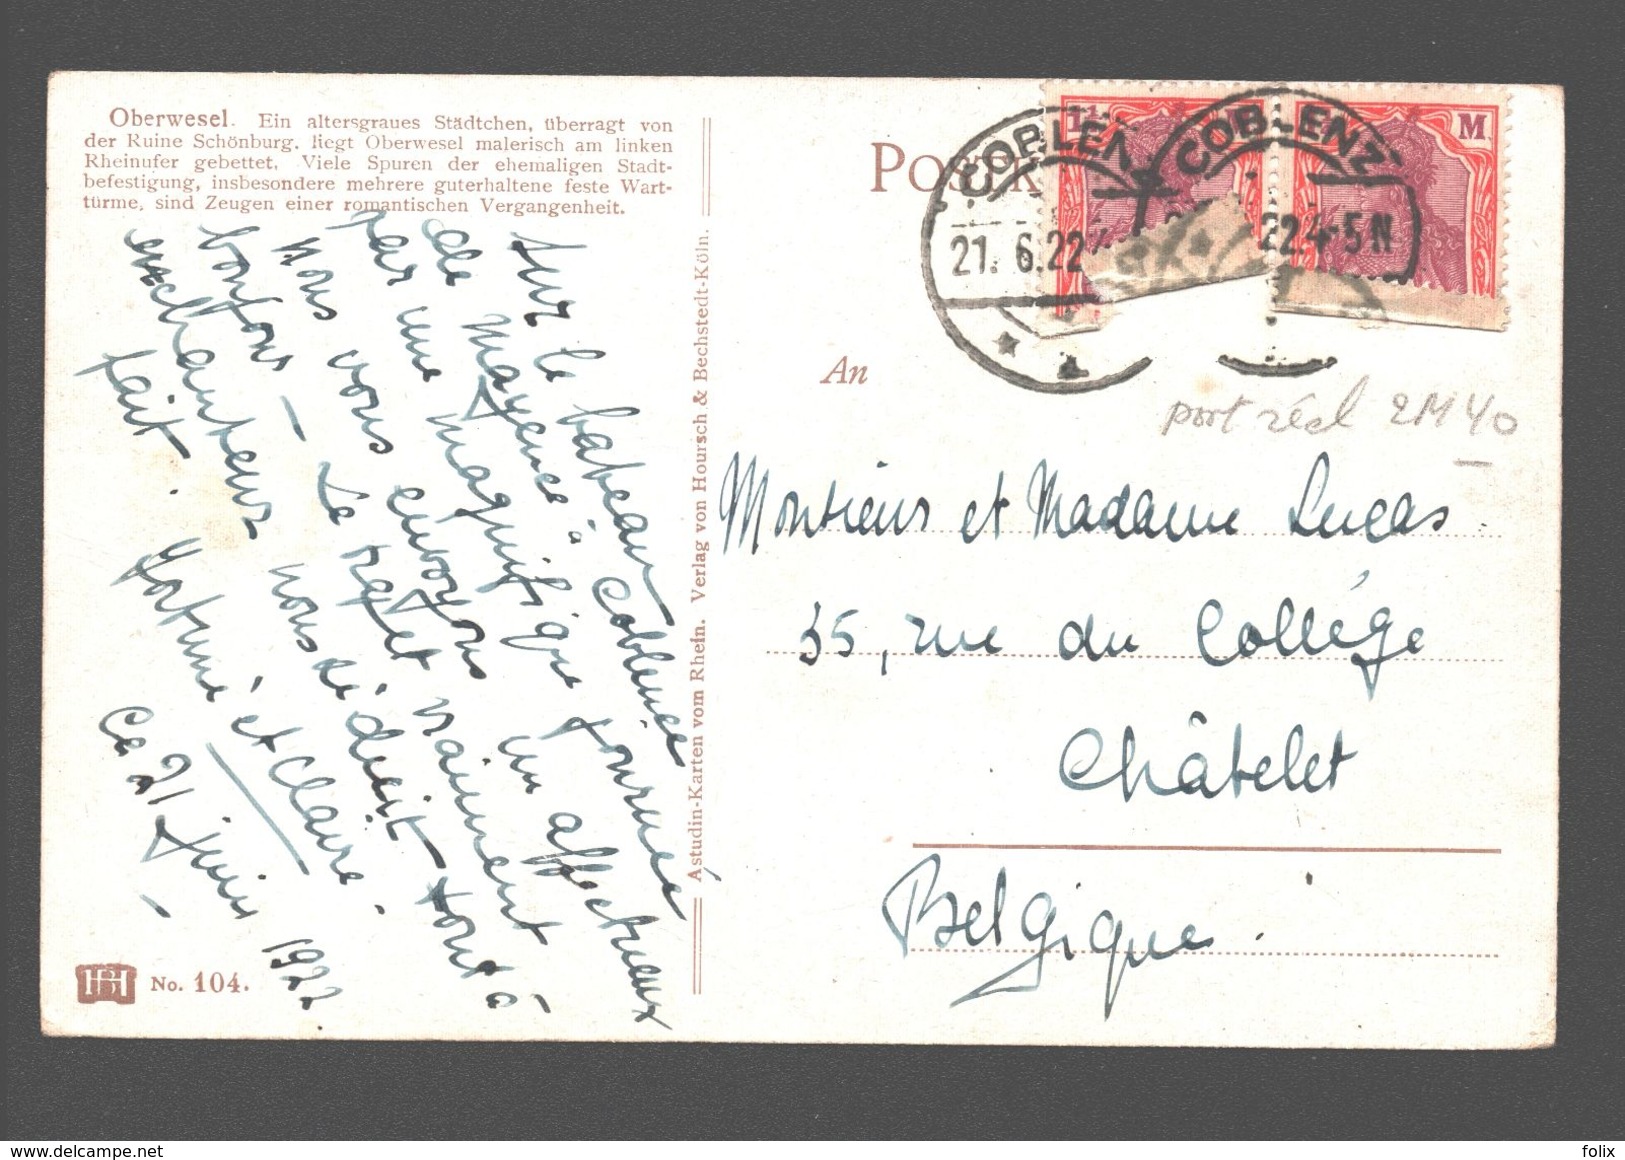 Oberwesel. Ein altersgraues Städtchen, überragt von
der Ruine Schönburg, liegt Oberwesel malerisch am linken
Rheinufer gebettet. Viele Spuren der ehemaligen Stadt-
befestigung, insbesondere mehrere guterhaltene feste Wart-
türme, sind Zeugen einer romantischen Vergangenheit.
Sur le bateau
de Mayence à Coblence
par une magnifique journée
nous vous envoyons un affectueux
bonjour – Le trajet vraiment
enchanteur nous séduit tout à
fait.
et Claire.
Ce 21 juin 1922
HBH
No. 104.
Astudin-Karten vom Rhein. Verlag von Hoursch & Bechstedt-Köln.
POSTK
COBLEN
21. 6.22
COBLENZ
22.4-5N
1¼
M
An
port réel 2M40
Monsieur et Madame Lucas
35, rue du Collége
Châtelet
Belgique.
delcampe.net
felix